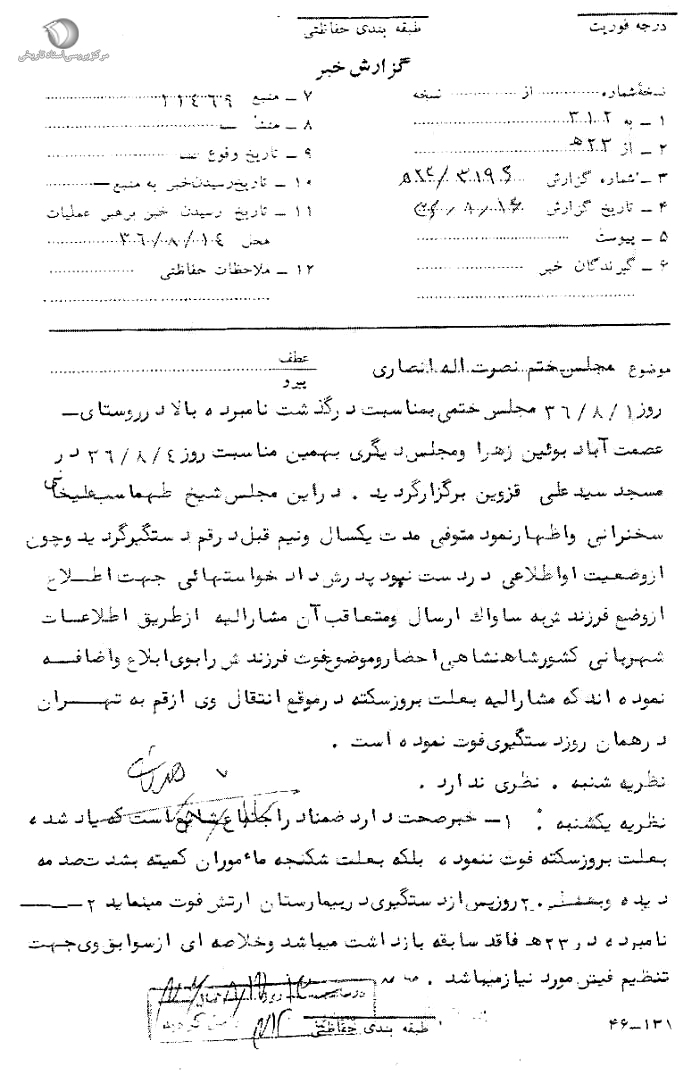 مرکز بررسی اسناد تاریخی
درجه فوریت
طبقه بندی حفاظتی
گزارش خبر
نسخهٔ شماره .......... از .......... نسخه
۱ ـ به ۳۱۲
۲ ـ از ۲۳ه‍
۳ ـ شماره گزارش
۴ ـ تاریخ گزارش
۵ ـ پیوست
۶ ـ گیرندگان خبر
۷ ـ منبع ۱۱۴۶۹
۸ ـ منشأ
۹ ـ تاریخ وقوع
۱۰ ـ تاریخ رسیدن خبر به منبع
۱۱ ـ تاریخ رسیدن خبر برهبر عملیات
محل ۳۶/۸/۱۴
۱۲ ـ ملاحظات حفاظتی
موضوع مجلس ختم نصرت اله انصاری
عطف
پیرو
روز ۳۶/۸/۱ مجلس ختمی بمناسبت درگذشت نامبرده بالا در روستای ـ
عصمت آباد بوئین زهرا ومجلس دیگری بهمین مناسبت روز ۳۶/۸/۴ در
مسجد سید علی قزوین برگزار گردید . دراین مجلس شیخ طهماسبعلیخانی
سخنرانی واظهار نمود متوفی مدت یکسال ونیم قبل در قم دستگیر گردید وچون
از وضعیت او اطلاعی در دست نبود پدرش داد خواستهائی جهت اطـلاع
از وضع فرزندش به ساواک ارسال ومتعاقب آن مشارالیه ازطریق اطلاعـات
شهربانی کشور شاهنشاهی احضار وموضوع فوت فرزندش را بوی ابلاغ واضافـه
نموده اند که مشارالیه بعلت بروز سکته در موقع انتقال وی از قم به تهـــران
در همان روز دستگیری فوت نموده است .
نظریه شنبه . نظری ندارد .
نظریه یکشنبه : ۱ـ خبر صحت دارد ضمنا در اجتماع شایع است که یاد شده
بعلت بروز سکته فوت ننموده بلکه بعلت شکنجه مأموران کمیته بشدت صدمه
دیده و ۲۰ روز پس از دستگیری در بیمارستان ارتش فوت مینماید ۲ ـــــ
نامبرده در ۲۳ه‍ فاقد سابقه بازداشت میباشد وخلاصه ای از سوابق وی جهت
تنظیم فیش مورد نیاز میباشد .
طبقه بندی حفاظتی
۴۶ــ۱۳۱